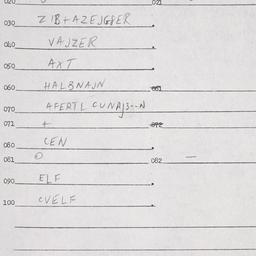 020 021
030 ZIB+AZEJGPER
040 VAJZER
050 AXT
060 HALBNAJN 061
070 AFERTL CUNAJ3--N
071 + 072
080 CEN
081 O 082 —
090 ELF
100 CVELF